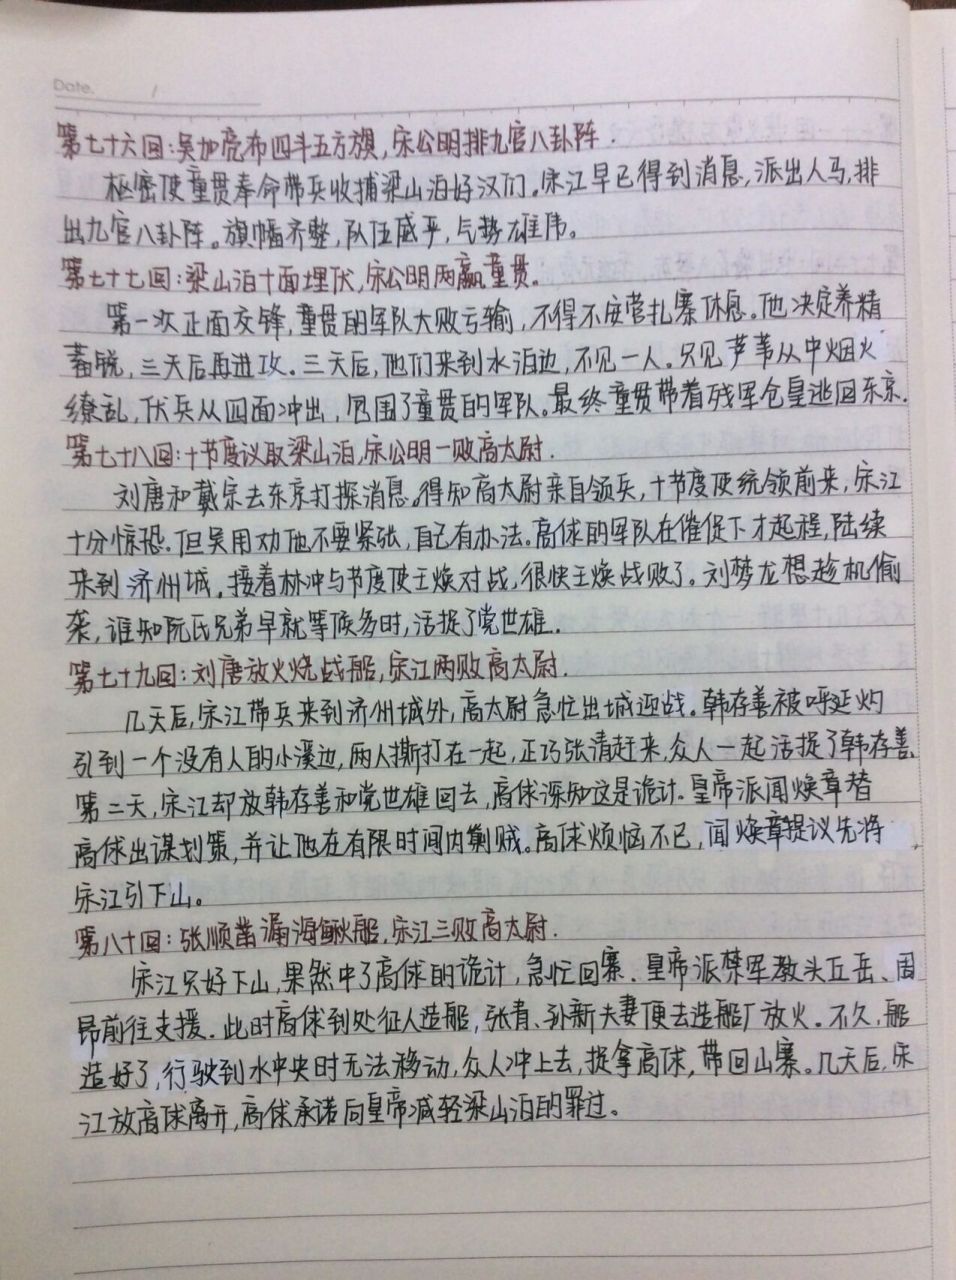 Date.
第七十六回：吴加亮布四斗五方旗，宋公明排九宫八卦阵．
枢密使童贯奉命带兵收捕梁山泊好汉们。宋江早已得到消息，派出人马，排
出九宫八卦阵。旗幡齐整，队伍威严，气势雄伟。
第七十七回：梁山泊十面埋伏，宋公明两赢童贯。
第一次正面交锋，童贯的军队大败亏输，不得不安营扎寨休息。他决定养精
蓄锐，三天后再进攻．三天后，他们来到水泊边，不见一人。只见芦苇丛中烟火
缭乱，伏兵从四面冲出，包围了童贯的军队。最终童贯带着残军仓皇逃回东京．
第七十八回：十节度议取梁山泊，宋公明一败高太尉．
刘唐和戴宗去东京打探消息。得知高太尉亲自领兵，十节度使统领前来，宋江
十分惊恐．但吴用劝他不要紧张，自己有办法。高俅的军队在催促下才起程，陆续
来到济州城．接着林冲与节度使王焕对战，很快王焕战败了．刘梦龙想趁机偷
袭，谁知阮氏兄弟早就等候多时，活捉了党世雄．
第七十九回：刘唐放火烧战船，宋江两败高太尉．
几天后，宋江带兵来到济州城外，高太尉急忙出城迎战．韩存善被呼延灼
引到一个没有人的小溪边，两人撕打在一起，正巧张清赶来，众人一起活捉了韩存善．
第二天，宋江却放韩存善和党世雄回去，高俅深知这是诡计．皇帝派闻焕章替
高俅出谋划策，并让他在有限时间内剿贼。高俅烦恼不已，闻焕章提议先将
宋江引下山。
第八十回：张顺凿漏海鳅船，宋江三败高太尉．
宋江只好下山，果然中了高俅的诡计，急忙回寨．皇帝派禁军教头丘岳、周
昂前往支援．此时高俅到处征人造船，张青、孙新夫妻便去造船厂放火．不久，船
造好了，行驶到水中央时无法移动，众人冲上去，捉拿高俅，带回山寨。几天后，宋
江放高俅离开，高俅承诺向皇帝减轻梁山泊的罪过。